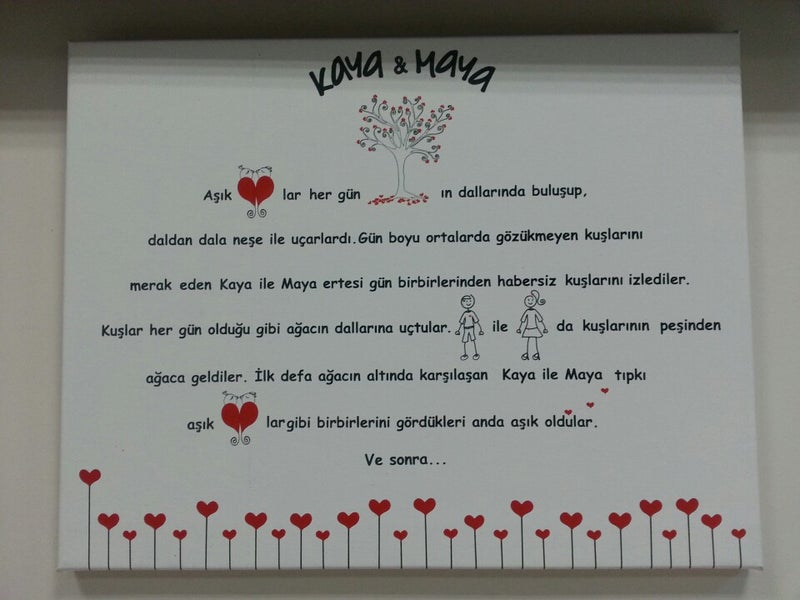 Kaya & Maya
Aşık lar her gün ın dallarında buluşup,
daldan dala neşe ile uçarlardı.Gün boyu ortalarda gözükmeyen kuşlarını
merak eden Kaya ile Maya ertesi gün birbirlerinden habersiz kuşlarını izlediler.
Kuşlar her gün olduğu gibi ağacın dallarına uçtular. ile da kuşlarının peşinden
ağaca geldiler. İlk defa ağacın altında karşılaşan Kaya ile Maya tıpkı
aşık largibi birbirlerini gördükleri anda aşık oldular.
Ve sonra...